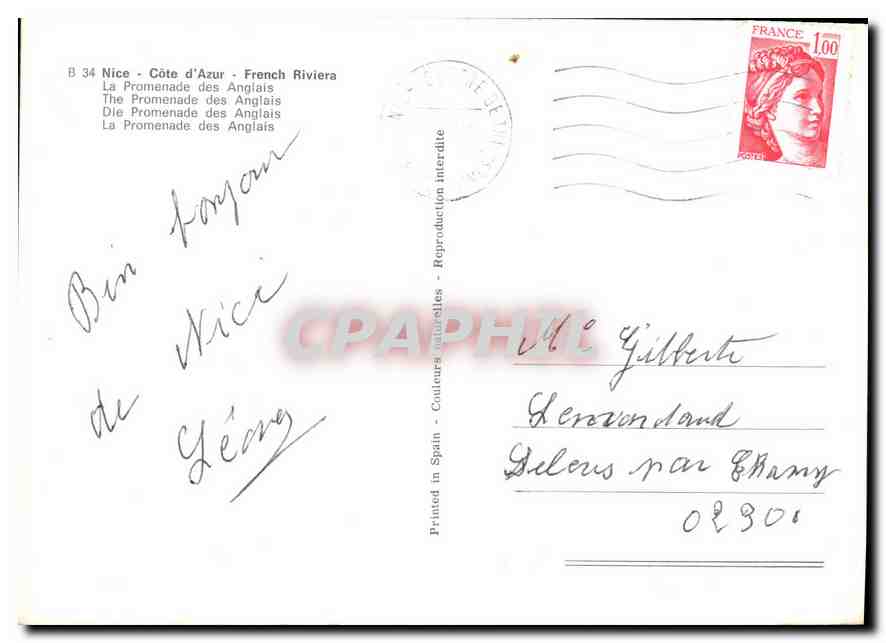 B 34 Nice - Côte d'Azur - French Riviera
La Promenade des Anglais
The Promenade des Anglais
Die Promenade des Anglais
La Promenade des Anglais
Bin bonjour
de Nice
Léon
Printed in Spain - Couleurs naturelles - Reproduction interdite
FRANCE 1,00
POSTES
CPAPHIL
Me Gilberte
par